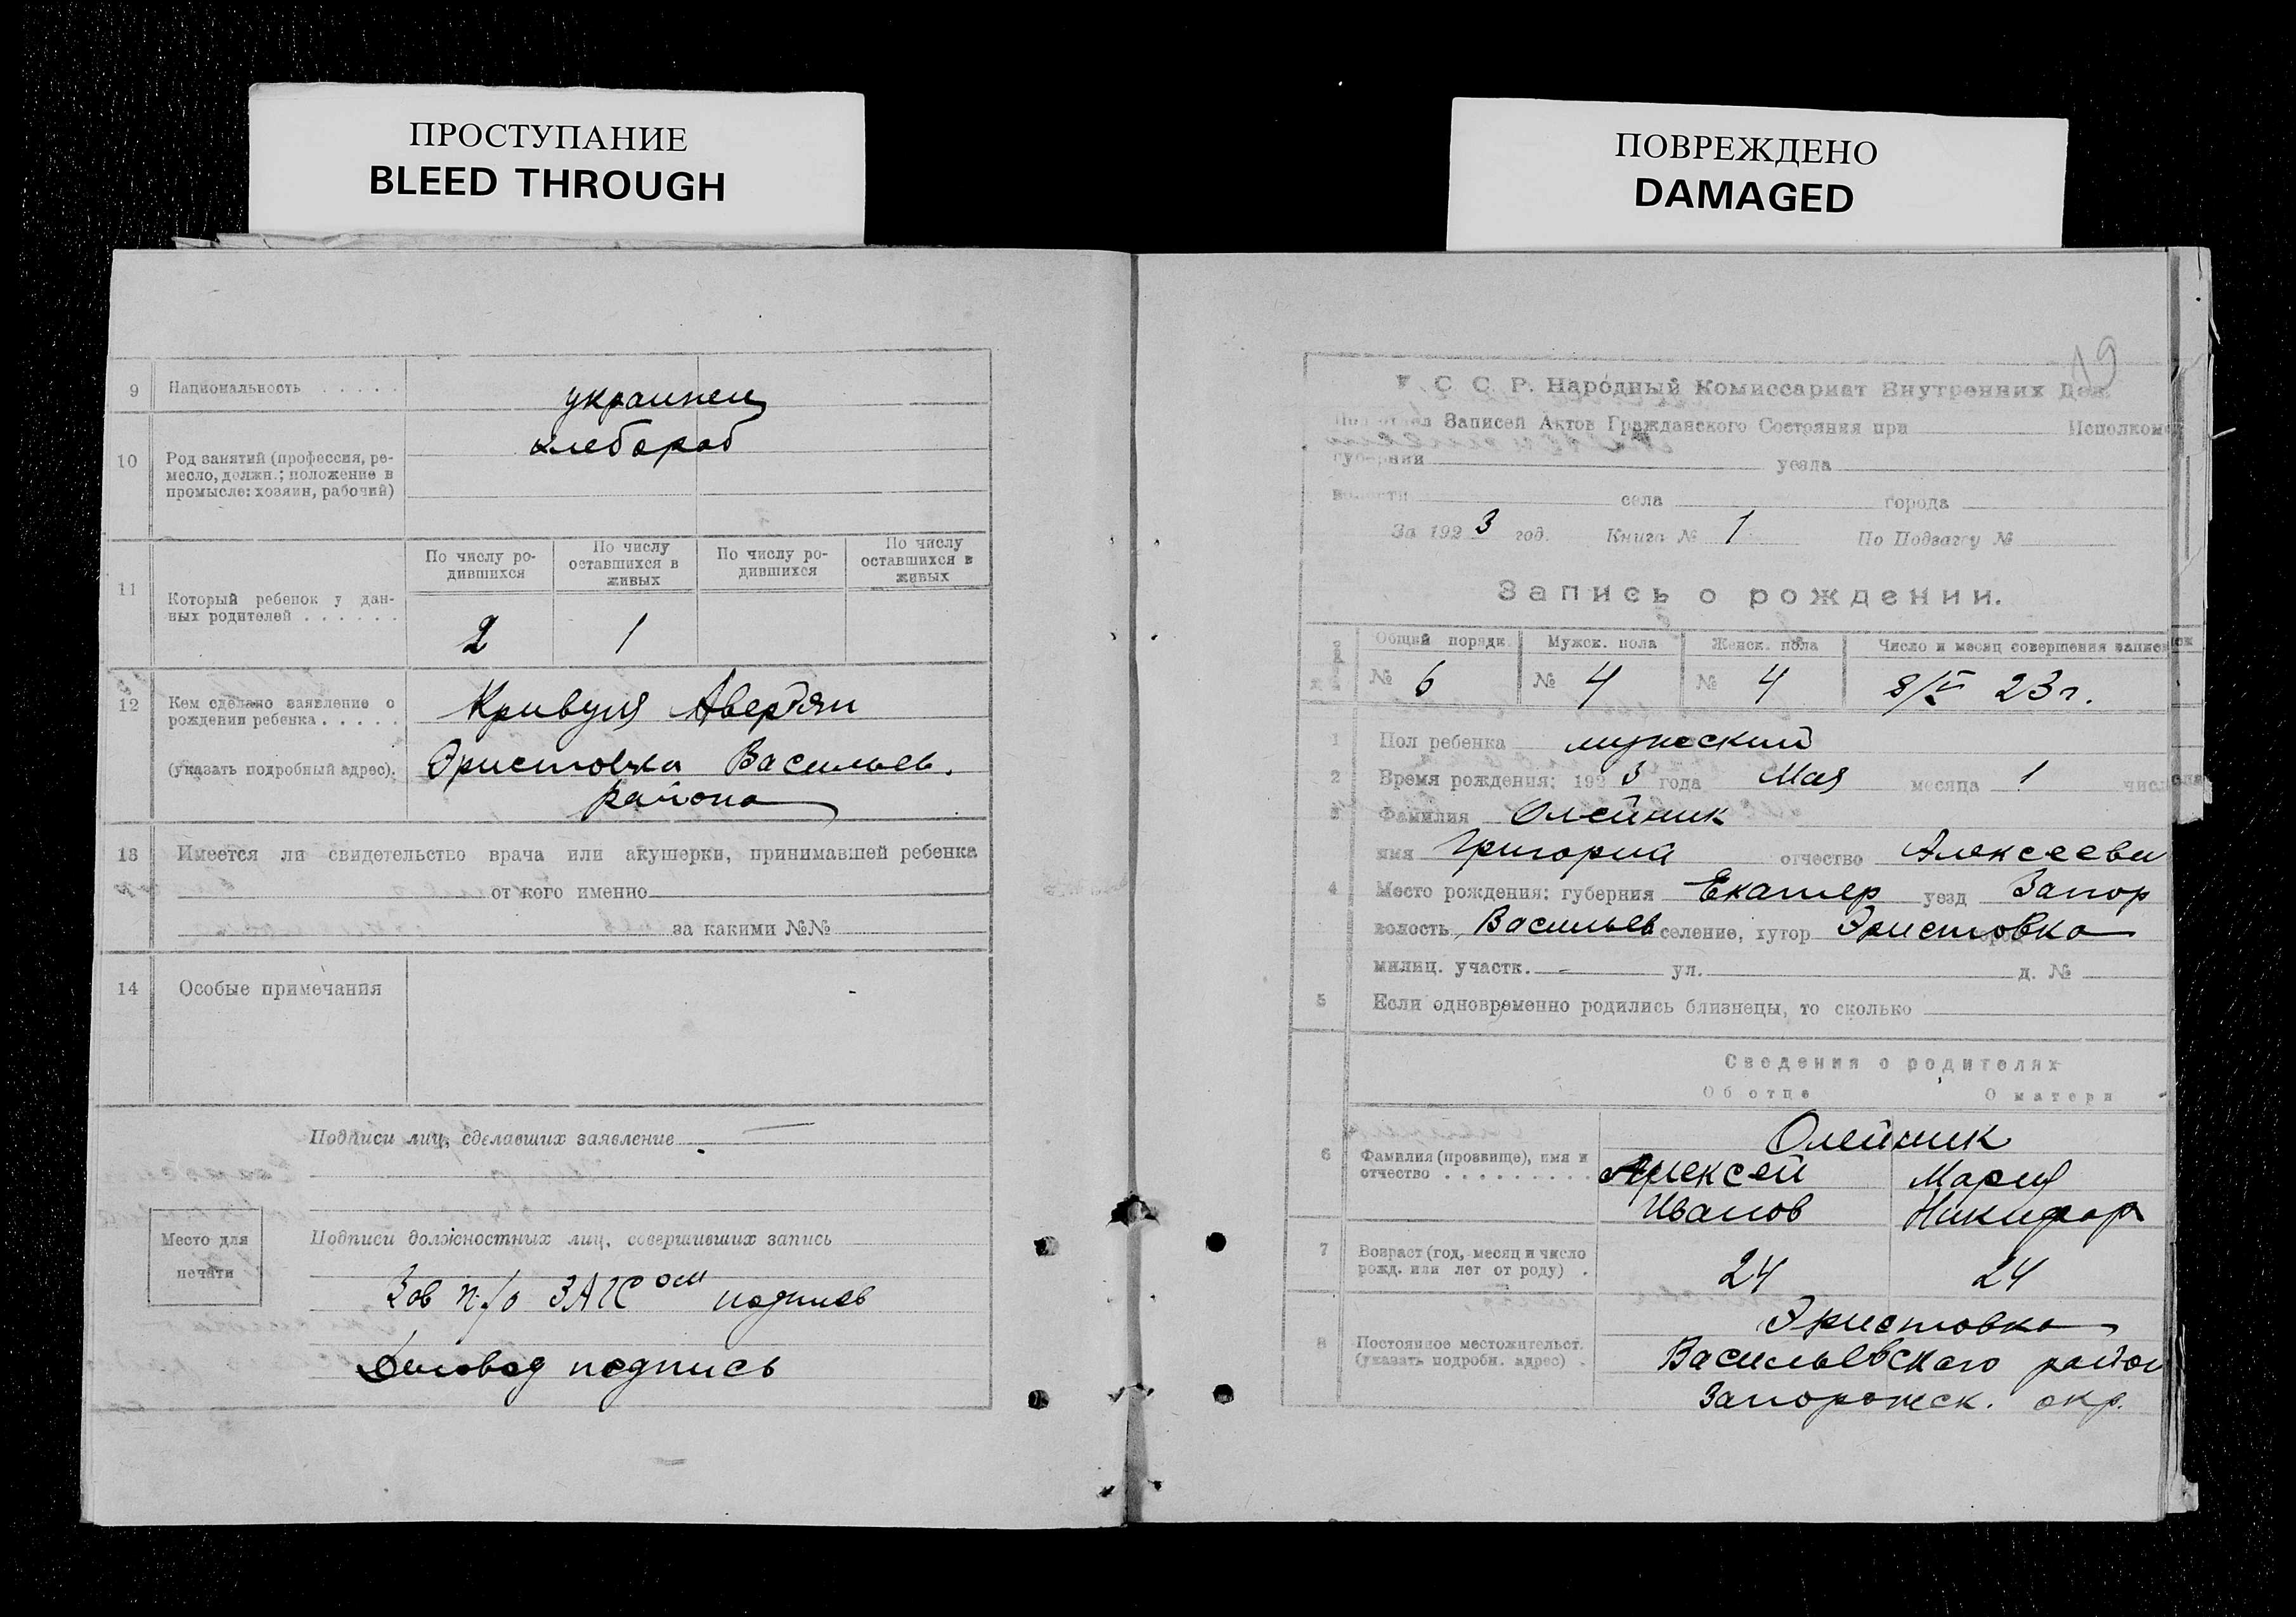 ПРОСТУПАНИЕ
BLEED THROUGH
9 Национальность . . . . .
украинец
10 Род занятий (профессия, ре-
месло, должн.; положение в
промысле: хозяин, рабочий)
хлебороб
11 Который ребенок у дан-
ных родителей . . . . . .
По числу ро-
дившихся
По числу
оставшихся в
живых
По числу ро-
дившихся
По числу
оставшихся в
живых
2 1
12 Кем сделано заявление о
рождении ребенка . . . . .
(указать подробный адрес).
Кривуля
Эристовка Васильев.
района
13 Имеется ли свидетельство врача или акушерки, принимавшей ребенка
от кого именно
за какими №№
14 Особые примечания
Подписи лиц, сделавших заявление
Место для
печати
Подписи должностных лиц, совершивших запись
Зав п/о ЗАГСом подпись
Деловод подпись
ПОВРЕЖДЕНО
DAMAGED
19
У. С. С. Р. Народный Комиссариат Внутренних Дел
Записей Актов Гражданского Состояния при Исполком
губернии уезда
волости села города
За 1923 год. Книга № 1 По Подзагсу №
Запись о рождении.
Общий порядк. Мужск. пола Женск. пола Число и месяц совершения записи
№ 6 № 4 № 4 8/V 23 г.
1 Пол ребенка мужской
2 Время рождения: 1923 года Мая месяца 1 числа
3 Фамилия Олейник
имя Григорий отчество Алексееви
4 Место рождения: губерния Екатер уезд Запор
волость Васильев селение, хутор Эристовка
милиц. участк. - ул. д. №
5 Если одновременно родились близнецы, то сколько
Сведения о родителях
Об отце О матери
6 Фамилия (прозвище), имя и
отчество . . . . . . . . .
Олейник
Алексей Мария
Иванов Никифор
7 Возраст (год, месяц и число
рожд. или лет от роду) .
24 24
8 Постоянное местожительст.
(указать подробн. адрес) .
Эристовка
Васильевского район
Запорожск. окр.